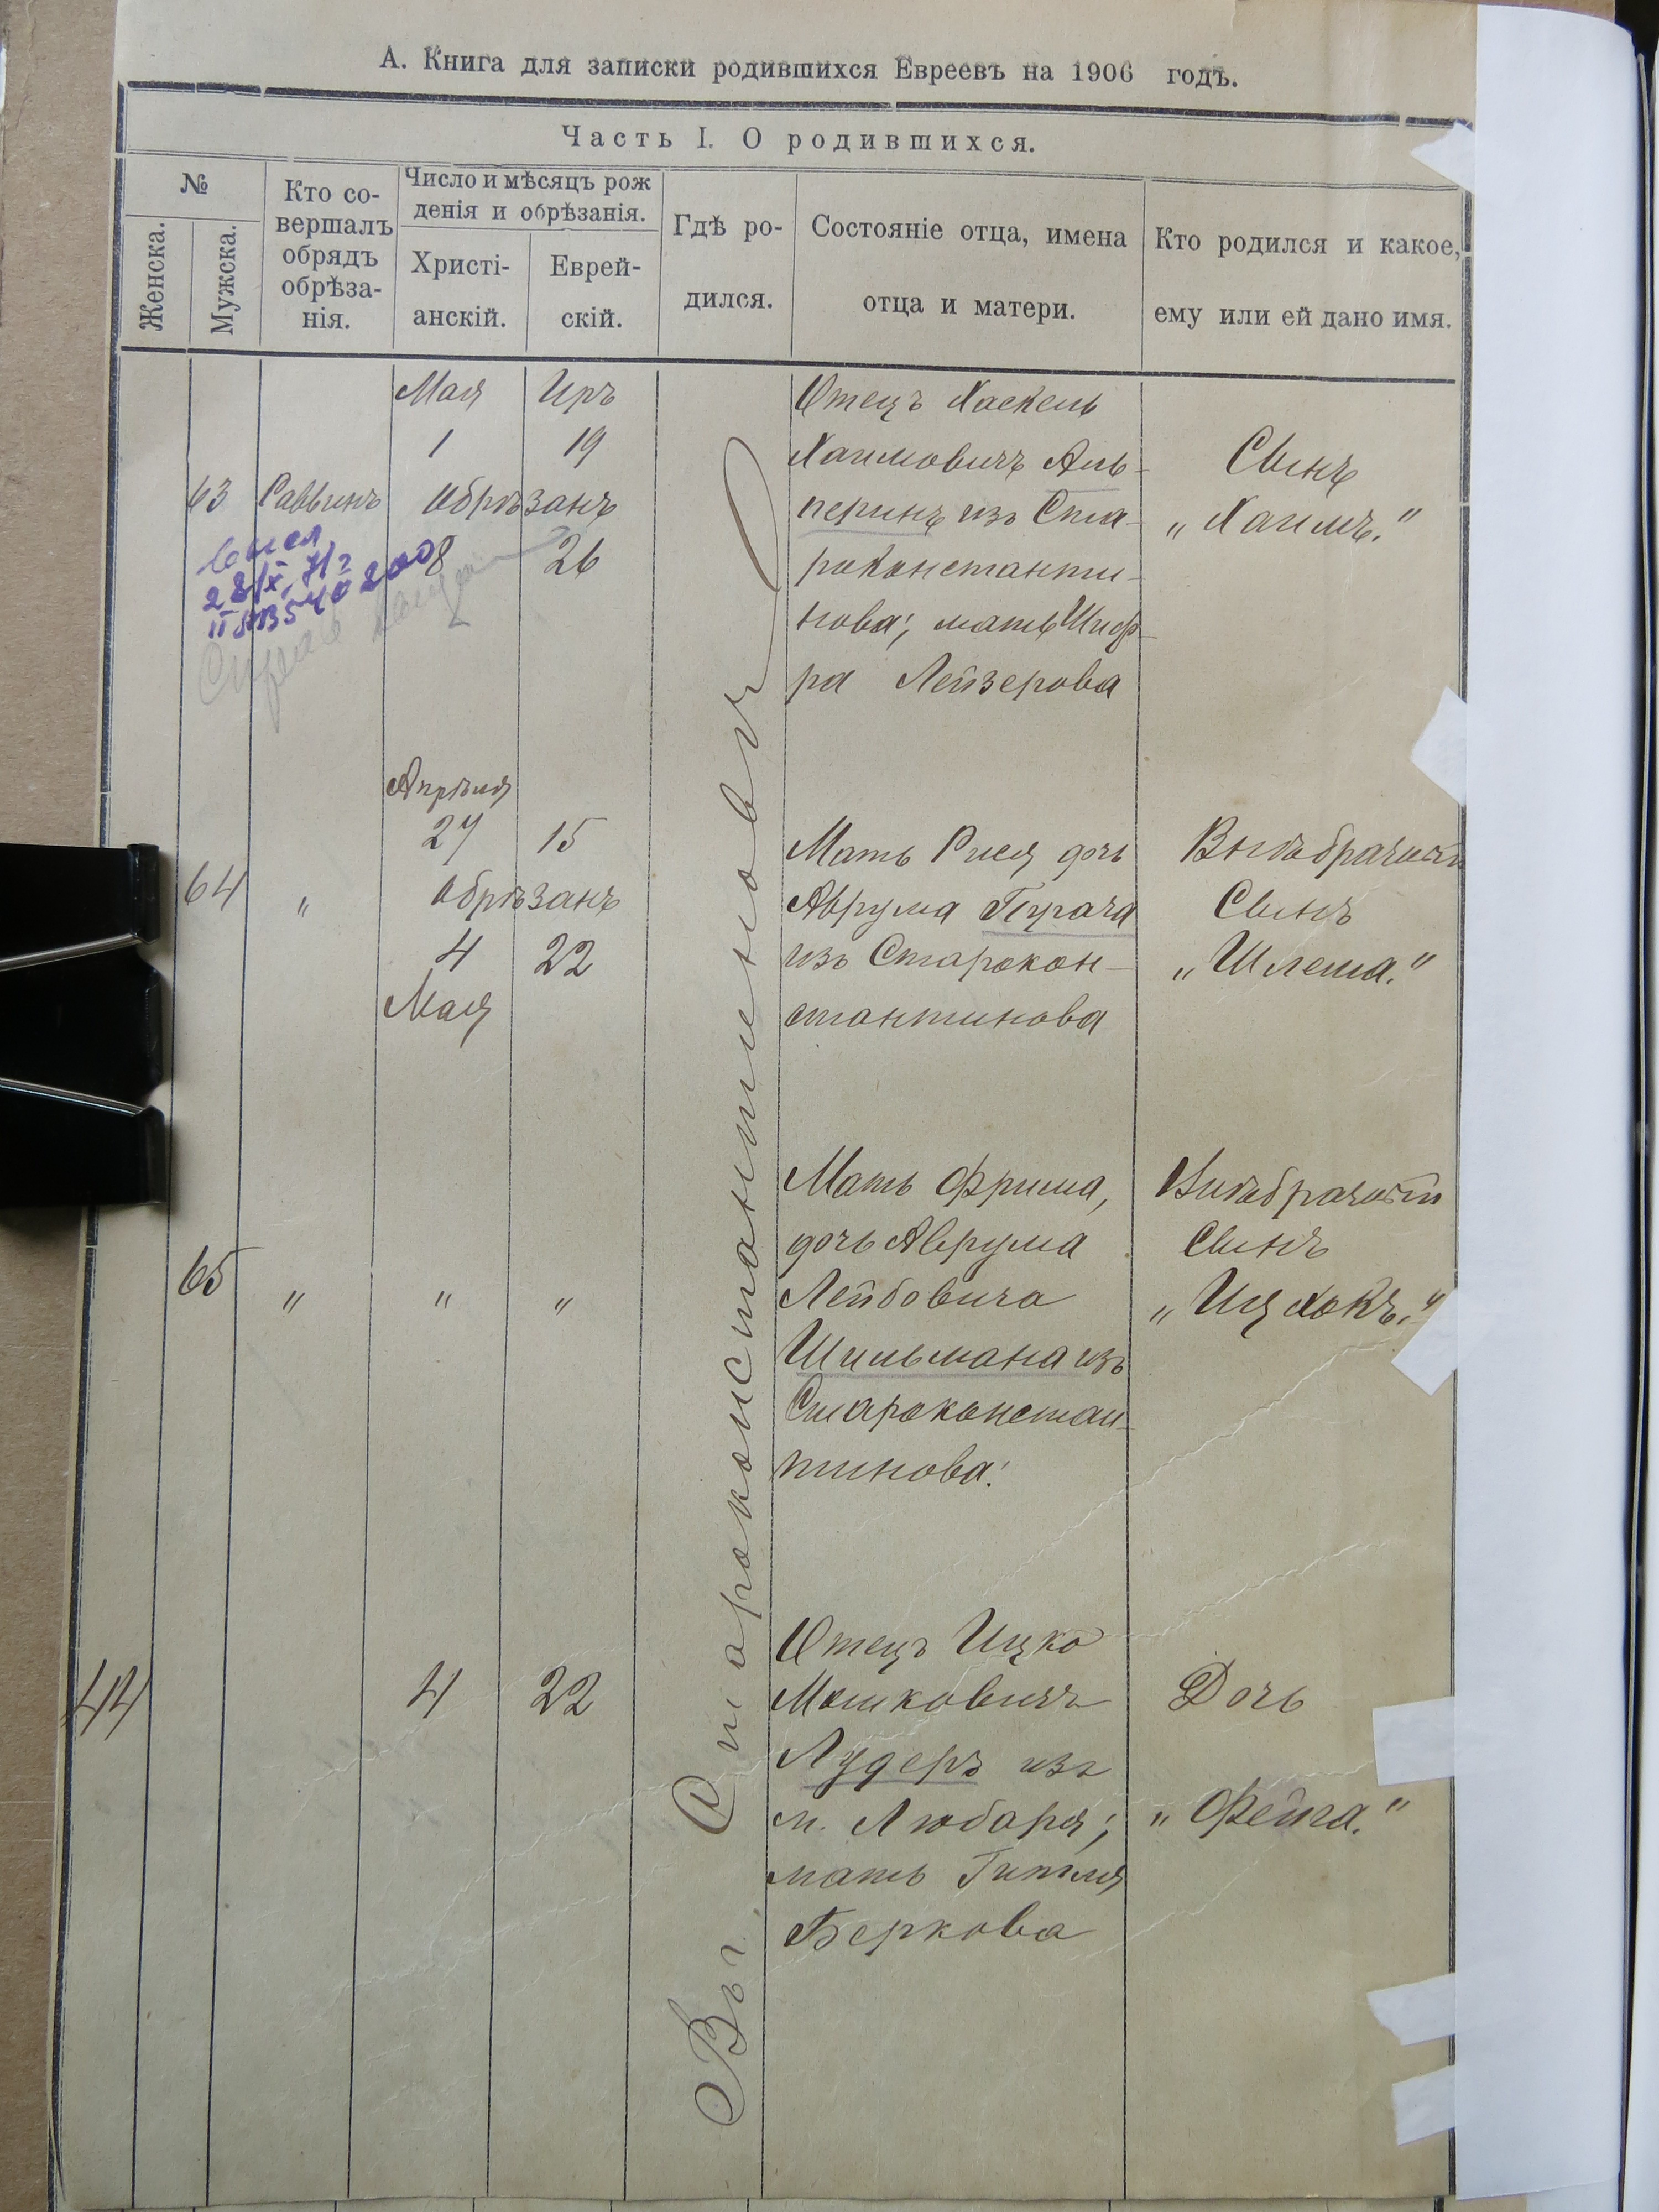 А. Книга для записки родившихся Евреевъ на 1906 годъ.
Часть I. О родившихся.
№
Женска.
Мужска.
Кто со-
вершалъ
обрядъ
обрѣза-
нія.
Число и мѣсяцъ рож
денія и обрѣзанія.
Христі-
анскій.
Еврей-
скій.
Гдѣ ро-
дился.
Состояніе отца, имена
отца и матери.
Кто родился и какое,
ему или ей дано имя.
Въ г. Староконстантиновѣ
Мая Иръ
1 19
63 Саввинъ Обрѣзанъ
8 26
28/X
Отецъ Хаскель
Хаимовичъ Аль-
перинъ из Ста-
роконстанти-
нова; мать Шиф-
ра Лейзерова
Сынъ
„Хаимъ."
Апрѣля
27 15
64 " Обрѣзанъ
4 22
Мая
Мать Рися дочь
Аврума Пурача
изъ Старокон-
стантинова
Внѣбрачный
Сынъ
„Шлема."
65 " " "
Мать Фрима,
дочь Аврума
Лейбовича
Шильмана изъ
Староконстан-
тинова.
Внѣбрачный
Сынъ
„Ицхокъ."
44 4 22
Отецъ Ицко
Мошковичъ
Лудеръ изъ
м. Любаря;
мать Гитля
Беркова
Дочь
„Фейга."